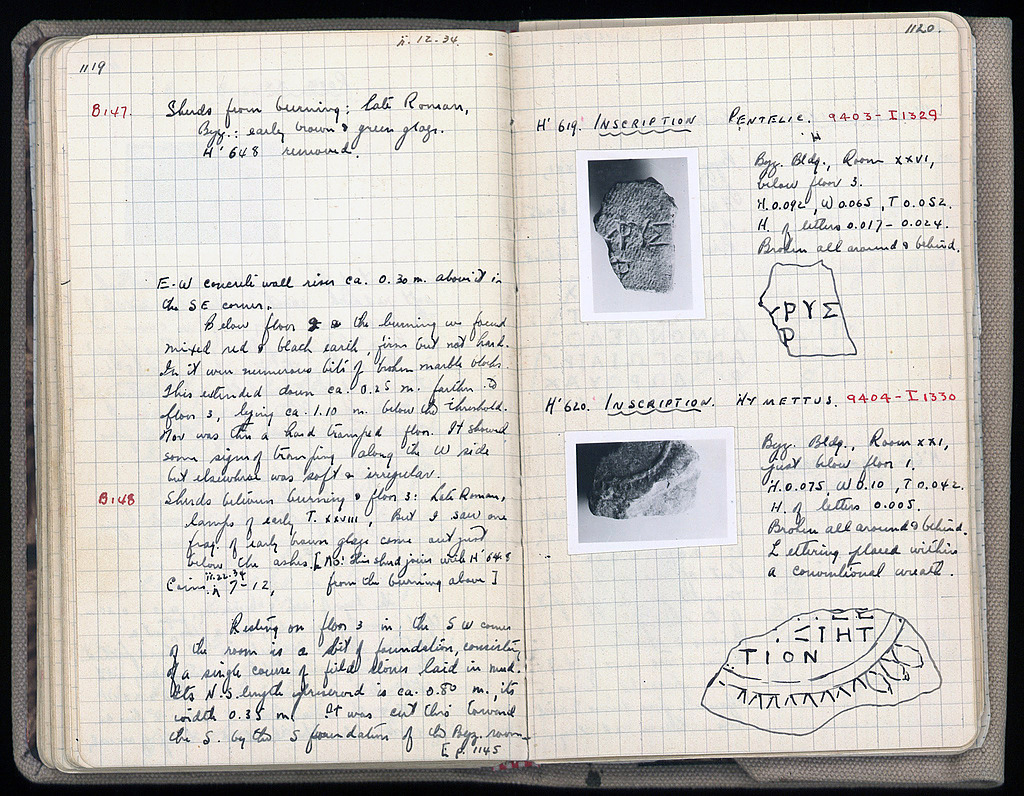 1119
ii.12.34.
B147. Sherds from burning: late Roman,
Byz.: early brown & green glaze.
H'648 removed.
E-W concrete wall rises ca. 0.30 m. above it in
the SE corner.
Below floor 2 & the burning we found
mixed red & black earth, firm but not hard.
In it were numerous bits of broken marble blocks.
This extended down ca. 0.25 m. farther to
floor 3, lying ca. 1.10 m. below the threshold.
Nor was this a hard tramped floor. It showed
some signs of tramping along the W side
but elsewhere was soft & irregular.
B148 Sherds between burning & floor 3: Late Roman,
lamps of early T. XXVIII, But I saw one
frag. of early brown glaze come out just
below the ashes. [NB: this sherd joins with H'648
from the burning above]
Coins ii.22.34 7-12,
Resting on floor 3 in the SW corner
of the room is a bit of foundation, consisting
of a single course of field stones laid in mud.
Its N-S length preserved is ca. 0.80 m., its
width 0.35 m. It was cut thru toward
the S. by the S foundation of the Byz. room
[p. 1145
1120.
H'619. INSCRIPTION PENTELIC. 9403-I1329
H
Byz. Bldg., Room XXVI,
below floor 3.
H. 0.092, W 0.065, T 0.052.
H. of letters 0.017-0.024.
Broken all around & behind.
ΡΥΣ
Ρ
H'620. INSCRIPTION. HYMETTUS. 9404-I1330
Byz. Bldg., Room XXI,
just below floor 1.
H. 0.075, W 0.10, T 0.042.
H. of letters 0.005.
Broken all around & behind.
Lettering placed within
a conventional wreath.
ΙΗΤ
ΤΙΟΝ